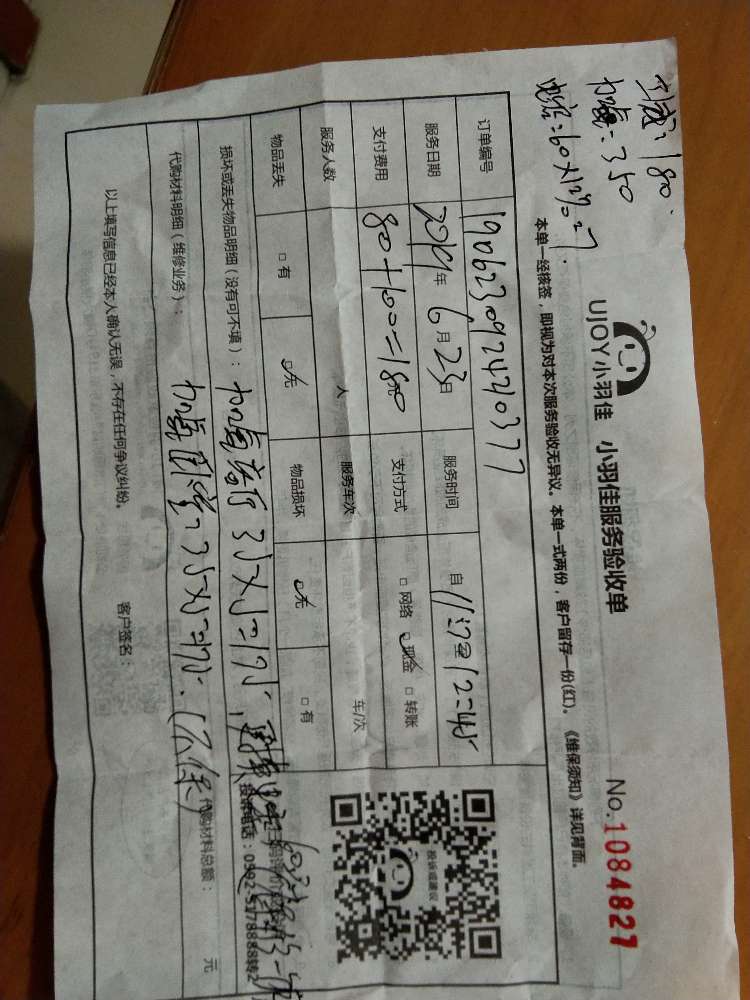 180.
加氟：350
UJOY小羽佳 小羽佳服务验收单
No.1084827
本单一经核签，即视为对本次服务验收无异议。本单一式两份，客户留存一份(红)。《维保须知》详见背面。
订单编号 190623092420377
服务日期 2019年6月23日 服务时间 自
支付费用 80+100=180 支付方式 □网络 □现金 □转账
服务人数 人 服务车次 车/次
物品丢失 □有 □无 物品损坏 □无 □有
损坏或丢失物品明细（没有可不填）：
35×5=175
代购材料明细（维修业务）：
35×5=175.（不保）
代购材料总额： 元
以上填写信息已经本人确认无误，不存在任何争议纠纷。 客户签名：
投诉或建议
投诉电话：0592-5178888转2